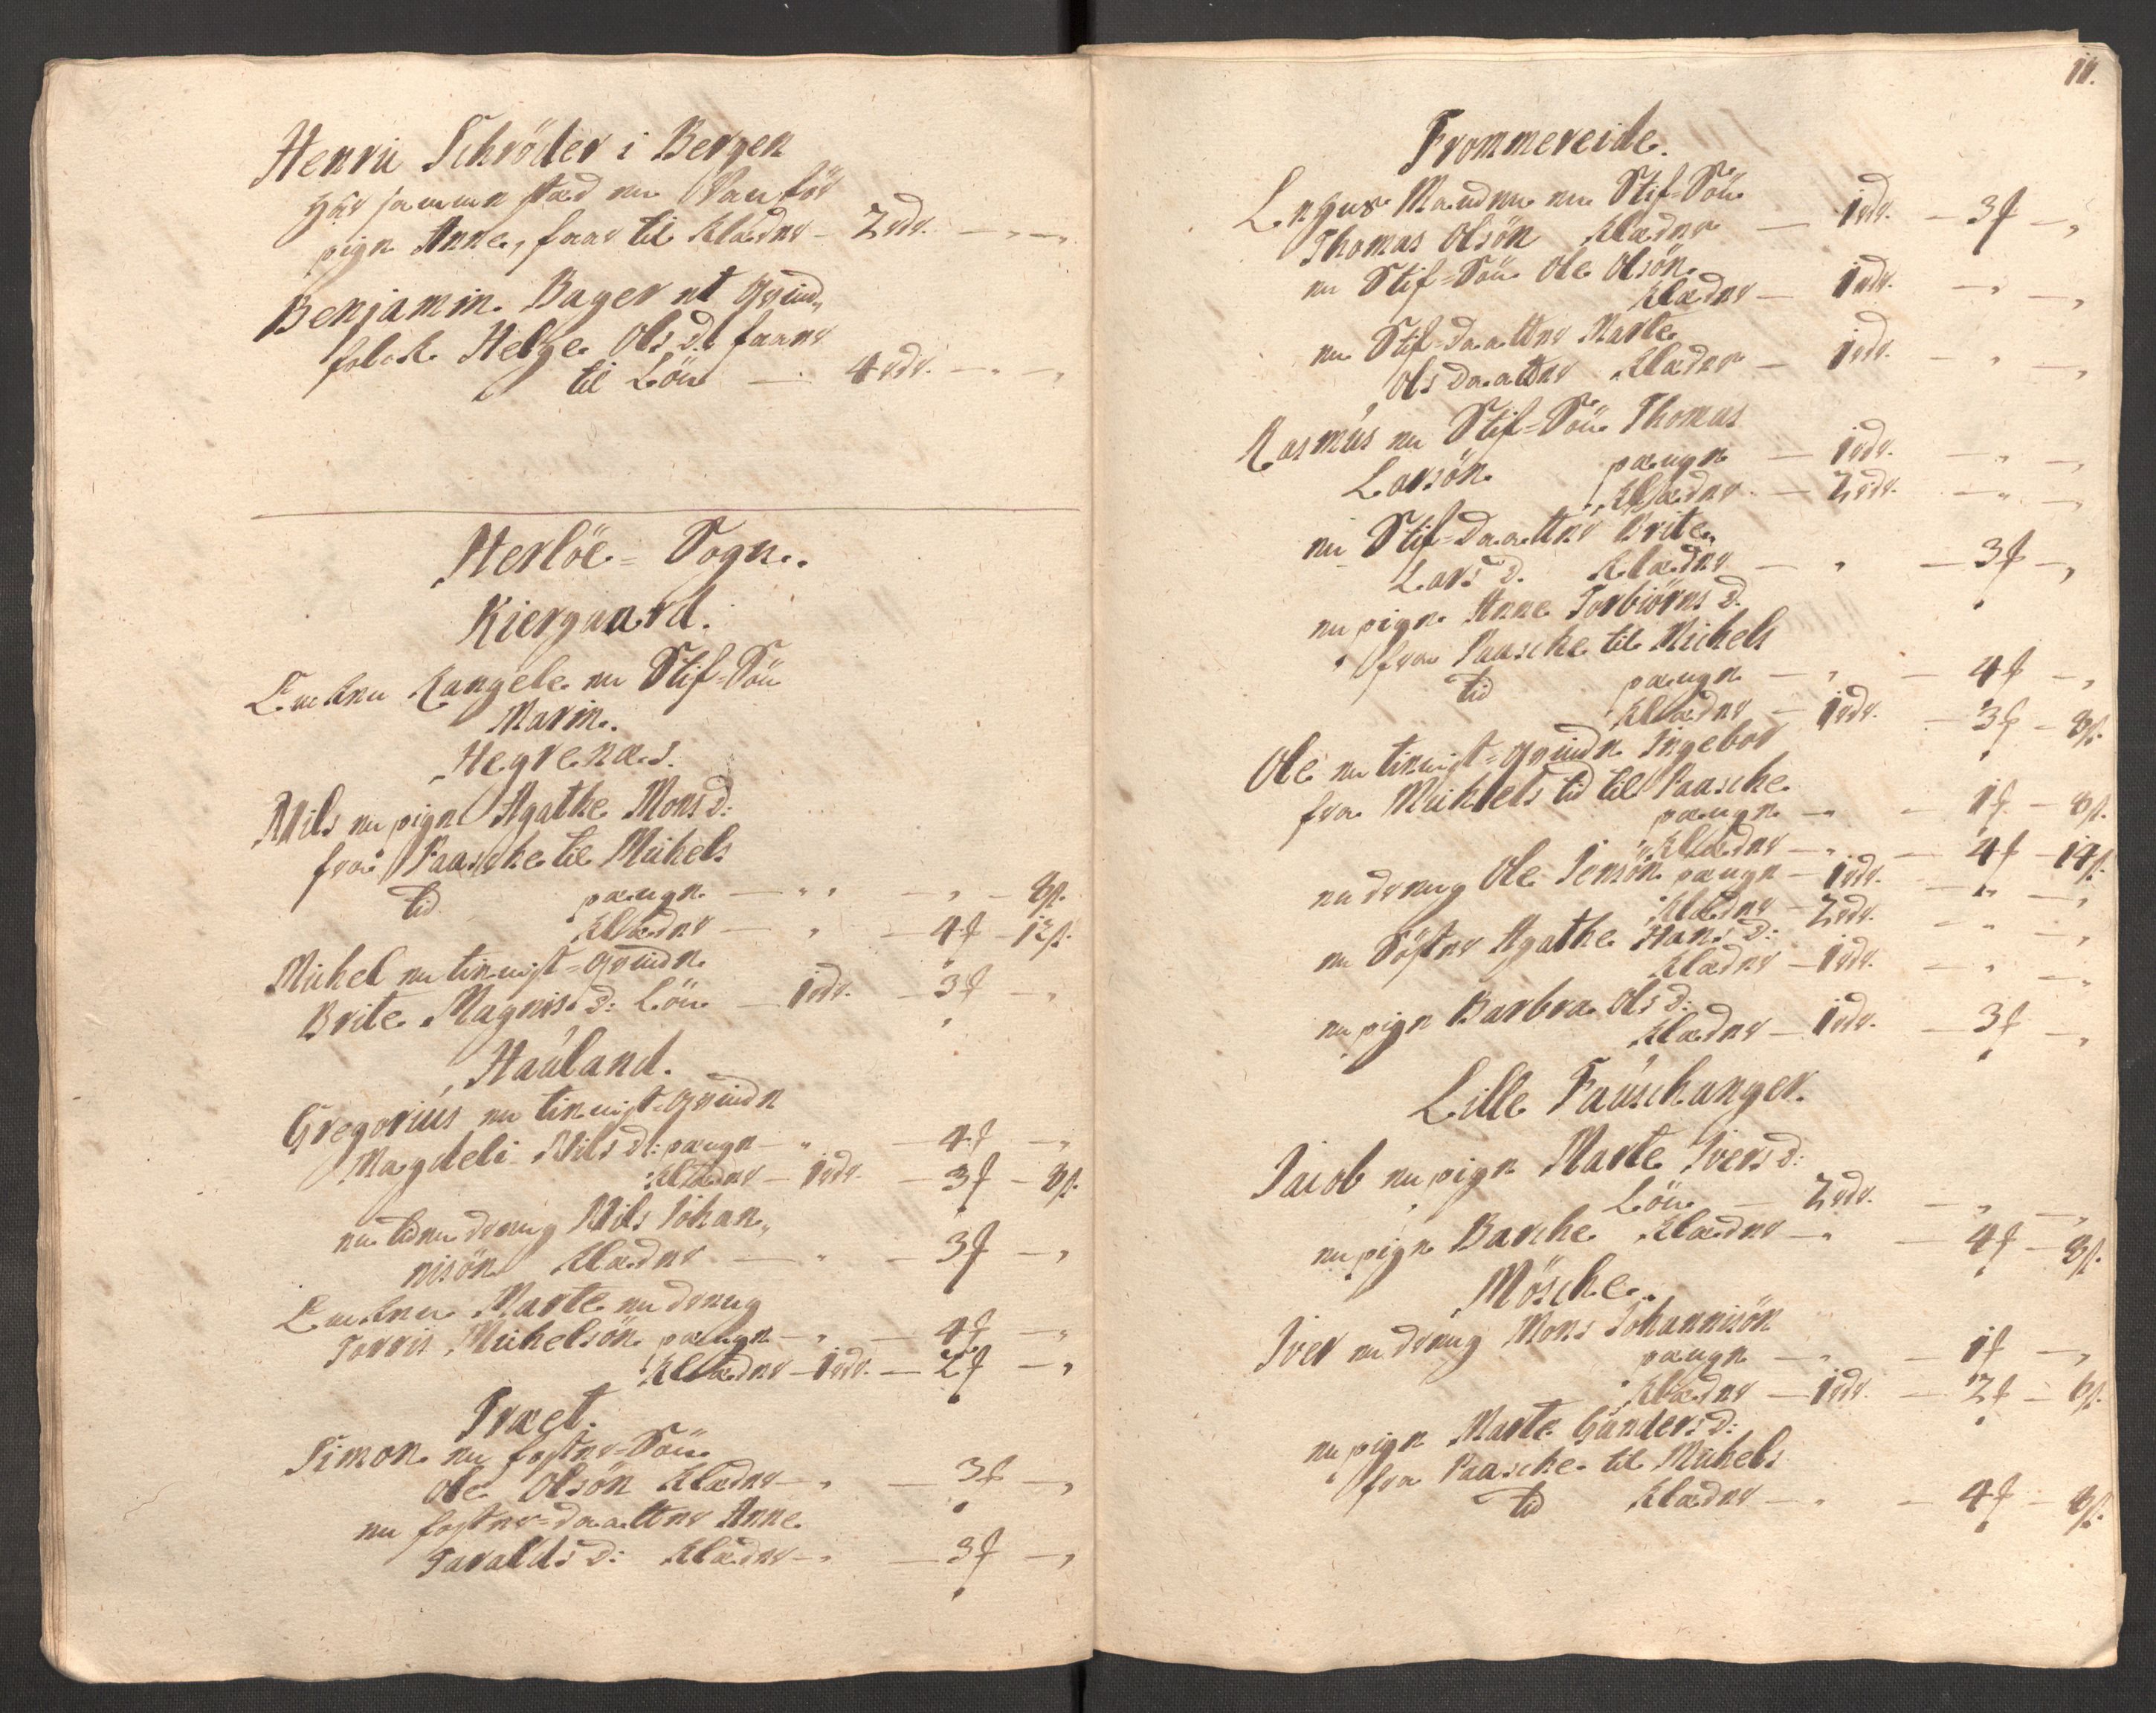 Henric Schröder i Bergen
Har sammestæd en Vanför
pige Anne, faar til Klæder – 2 rdr. – „ – „
Benjamin Bager et Qvind„
folck Helge Ols d: faaer
til Lön — 4 rdr. – „ – „
Herlöe = Sogn.
Kiergaard.
Encken Rangele en Stif=Sön
Marin.
Hegrenæs.
Nils en pige Agathe Mons d:
fra Paaske til Michels
tid penge — „ — „ – 8 s.
Klæder — „ — 4 f – 12 s.
Michel en tieniste=qvinde
Brite Magnis d: Lön — 1 rdr. – 3 f – „
Haaland.
Gregorius en tieniste=qvinde
Magdeli Nils d: penge — „ — 4 f – „
Klæder — 1 rdr. — 3 f – 8 s.
en liden dreng Nils Johan„
nisön Klæder — „ — 3 f – „
Encken Marte en dreng
Torris Michelsön penge — „ — 4 f – „
Klæder — 1 rdr. — 2 f – „
Træet.
Simon en foster=Sön
Ole Olsön Klæder — „ — 3 f – „
en foster=daatter Anne
Taralds d: Klæder — „ — 3 f – „
11.
Frommereide.
Lensmanden en Stif=Sön
Thomas Olsön Klæder — 1 rdr. – 3 f – „
en Stif=Sön Ole Olsön
Klæder — 1 rdr. – „ – „
en Stif=daatter Marte
Olsdaatter Klæder — 1 rdr. – „ – „
Rasmus en Stif=Sön Thomas
Larsön penge — 1 rdr. – „ – „
Klæder — 2 rdr. – „ – „
en Stif=daatter Brite
Lars d. Klæder — „ — 3 f – „
en pige Anne Torbiörns d.
fra Paasche til Michels
tid penge — „ — 4 f – „
Klæder — 1 rdr. – 3 f – 8 s.
Ole en tieniste=qvinde Ingebor
fra Michels tid til Paasche
penge — „ — 1 f – 8 s.
Klæder — „ — 4 f – 14 s.
en dreng Ole Jensön penge — 1 rdr. – „ – „
Klæder — 2 rdr. – „ – „
en Söster Agathe Hans d:
Klæder — 1 rdr. – „ – „
en pige Barbra Ols d:
Klæder — 1 rdr. – 3 f – „
Lille Fauschanger.
Jacob en pige Marte Ivers d:
Lön — 2 rdr. – „ – „
en pige Barche Klæder — „ — 4 f – 8 s.
Mösche.
Iver en dreng Mons Johannisön
penge — „ — 1 f – „
Klæder — 1 rdr. – 2 f – 6 s.
en pige Marte Gunders d:
fra Paasche til Michels
tid Klæder — „ — 4 f – 8 s.